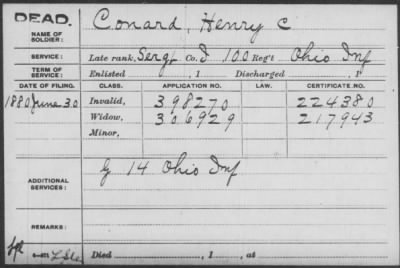 DEAD.
NAME OF SOLDIER: Conard, Henry C
SERVICE: Late rank, Serg, Co. I 100 Reg't Ohio Inf
TERM OF SERVICE: Enlisted , 1 Discharged , 1
DATE OF FILING. CLASS. APPLICATION NO. LAW. CERTIFICATE NO.
1880 June 30 Invalid, 398270 224380
Widow, 306929 217943
Minor,
ADDITIONAL SERVICES: G 14 Ohio Inf
REMARKS:
Died , 1 , at